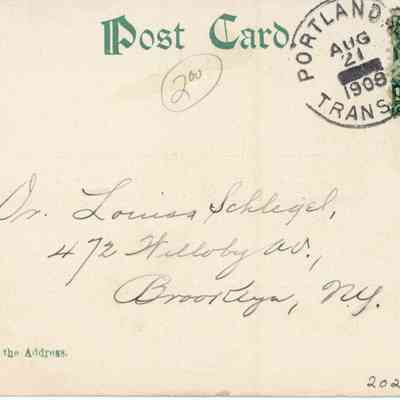 Post Card
2.00
PORTLAND
AUG
21
1908
TRANS
Dr. Louisa Schlegel,
472 Willoby Av.,
Brooklyn, N.Y.
the Address.
202